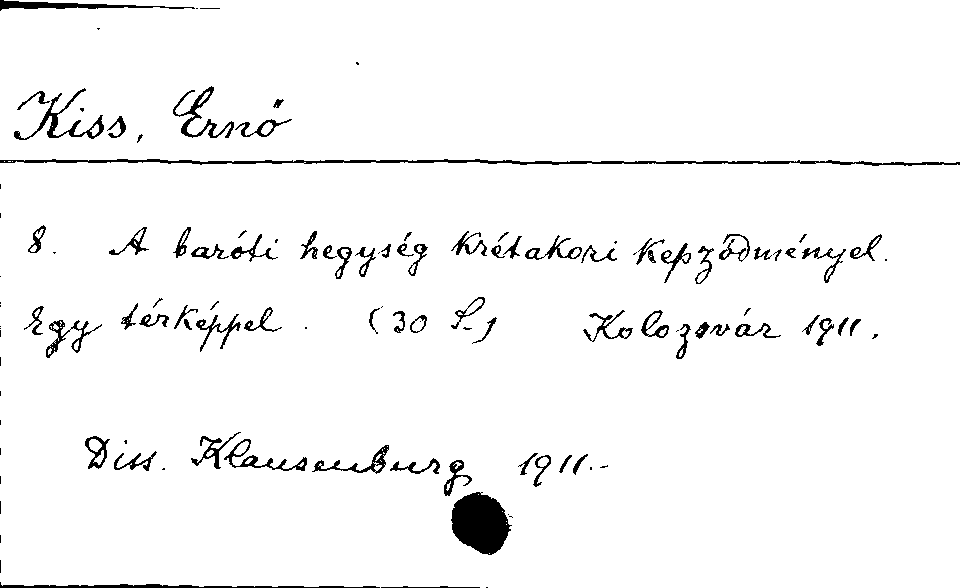 Kiss, Ernő
8. A baróti hegység krétakori kepződményel.
Egy térképpel. (30 S.) Kolozsvár 1911.
Diss. Klausenburg 1911.-